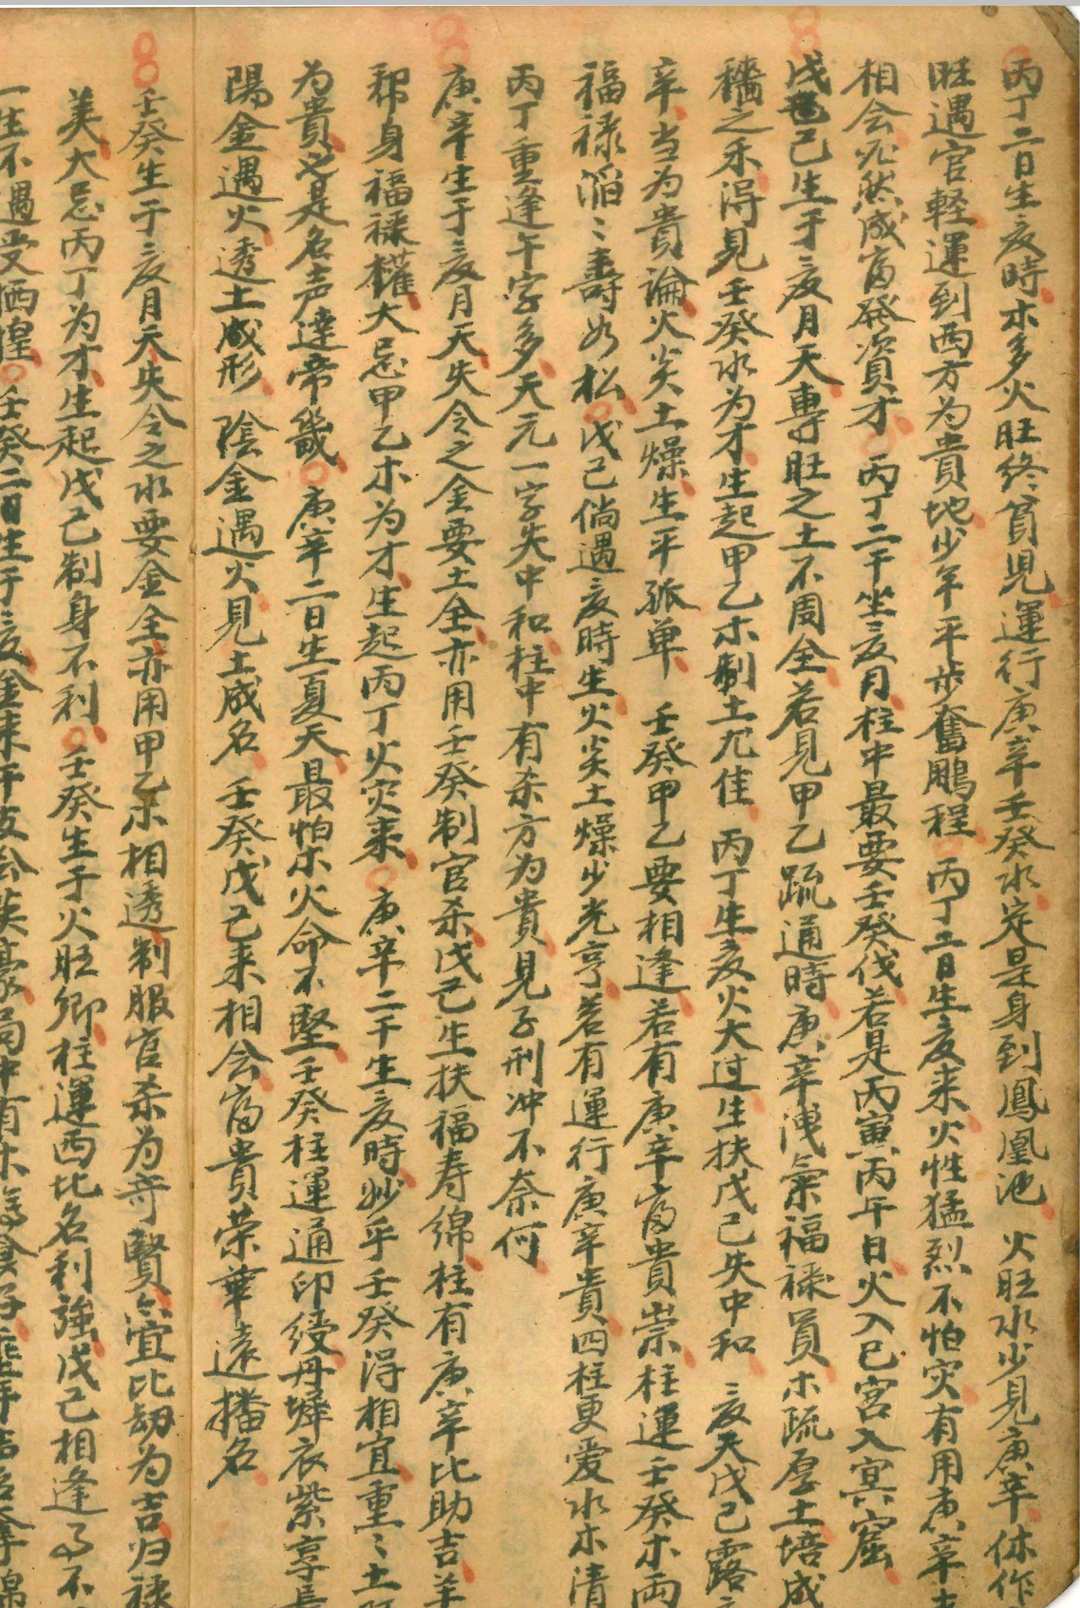 丙丁二日生夏時木多火旺終貧児運行庚辛壬癸水定是身到鳳凰池 火旺水少見庚辛休作
旺遇官軽運到西方为貴地少年平步奮鵬程 丙丁二日生夏来火性猛烈不怕灾有用庚辛
相会必然成富発資才 丙丁二干坐夏月柱中最要壬癸伐若是丙寅丙午日火入巳宮入冥窟
戊己生于夏月天專旺之土不周全若見甲乙疏通時庚辛洩氣福禄員木疏厚土培成
穡之禾得見壬癸水为才生起甲乙木制土尤佳 丙丁生夏火大过生扶戊己失中和 夏天戊己露
辛当为貴論火炎土燥生平孤单 壬癸甲乙要相逢若有庚辛富貴崇柱運壬癸木両
福禄滔〻壽如松 戊己倘遇夏時生火炎土燥少光亨若有運行庚辛貴四柱更爱水木清
丙丁重逢午字多天元一字失中和柱中有杀方为貴見子刑冲不奈何
庚辛生于夏月天失令之金要土全亦用壬癸制官杀戊己生扶福寿綿柱有庚辛比助吉羊
邦身福禄權大忌甲乙木为才生起丙丁火灾来 庚辛二干生夏時妙乎壬癸得相宜重〻土
为貴也是名声達帝畿 庚辛二日生夏天最怕木火命不堅壬癸柱運通印綬丹墀衣紫享長
陽金遇火透土成形 陰金遇火見土成名 壬癸戊己来相会富貴荣華遠播名
壬癸生于夏月天失令之水要金全亦用甲乙木相透制服官杀为奇賢亦宜比劫为吉归禄
美大忌丙丁为才生起戊己制身不利 壬癸生于火旺鄉柱運西北名利強戊己相逢為不
一生不遇受恓惶 壬癸二日生于夏金来